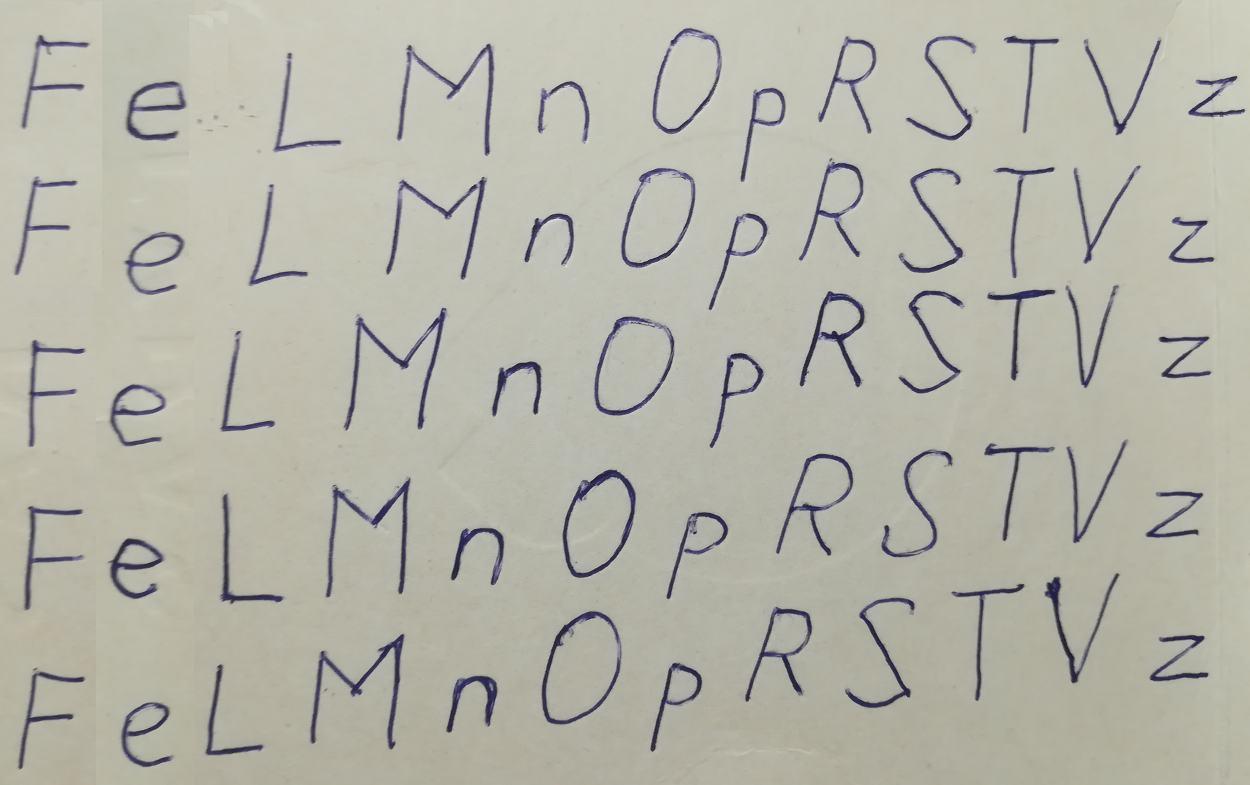 F e L M n O p R S T V z
F e L M n O p R S T V z
F e L M n O p R S T V z
F e L M n O p R S T V z
F e L M n O p R S T V z